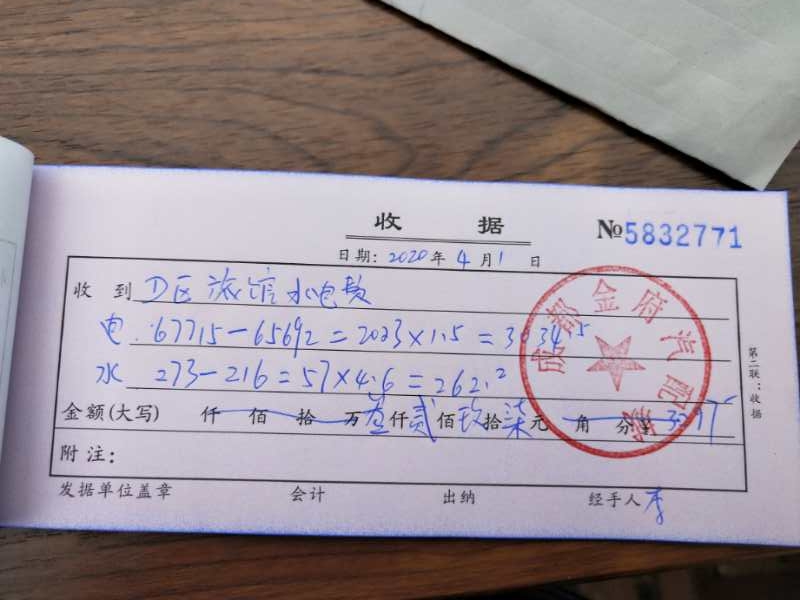 收 据
№5832771
日期: 2020 年 4 月 1 日
收 到 D区旅馆水电费
电. 67715-65692=2023×1.5=3034.5
水 273-216=57×4.6=262.2
金额(大写) 仟 佰 拾 万叁仟贰佰玖拾柒元 角 分¥ 3297
附 注:
发据单位盖章 会计 出纳 经手人 李
第二联:收据
成都金府汽配城